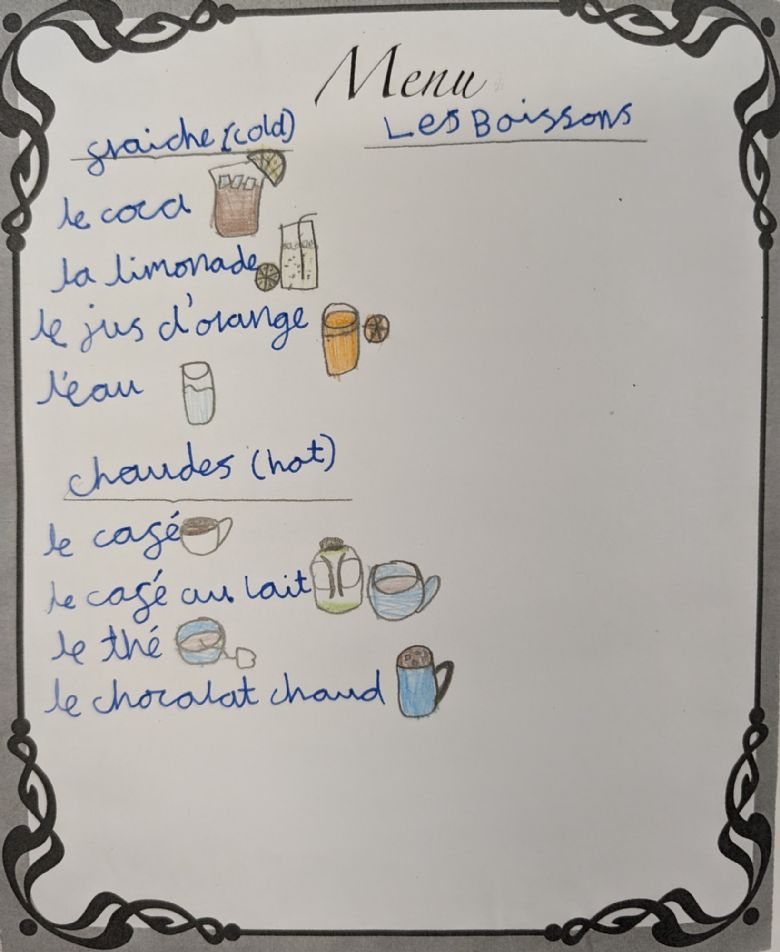 Menu
fraiche (cold)
Les Boissons
le coca
la limonade
le jus d'orange
l'eau
chaudes (hot)
le café
le café au lait
le thé
le chocolat chaud